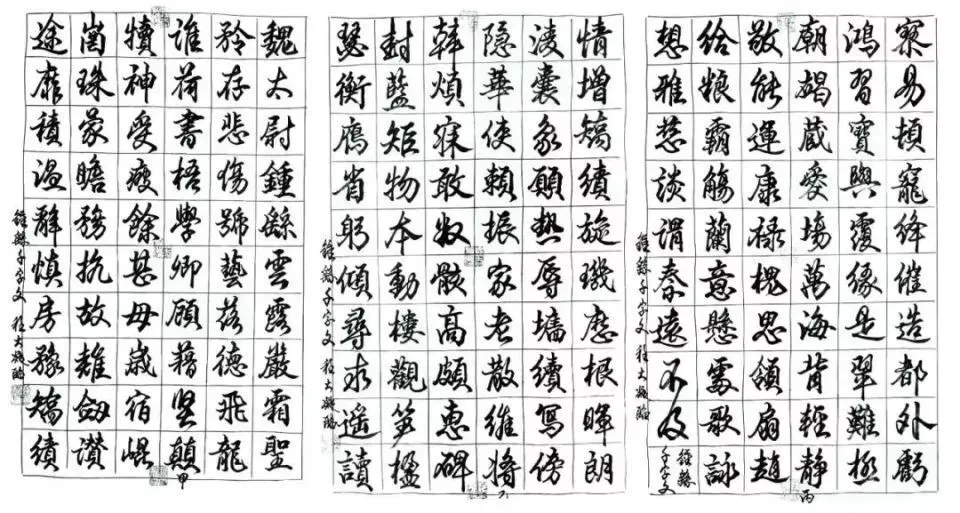 魏太尉鍾繇雲露嚴霜聖
矜存悲傷號藝落德飛龍
誰荷書梧學卿顧藉堅顛
犢神受瘦餘甚母歲宿崐
崗珠蒙瞻務抗故雞劔讃
途靡積溫辭慎房豫矯績
鍾繇千字文 程大
甲
情增矯績旋璣歷根暉朗
淩囊象願熱辱墻續寫傍
隐華使賴振家老散維將
韓煩寐敢牧骸高頗惠碑
封藍矩物本動樓觀筭楹
瑟衡鴈省躬傾尋求遥讀
鍾繇千字文 程大
乙
寮易頓寵絳催造都外虧
鴻習寶與覆緣是翠難極
廟碣藏愛場萬海背輕靜
敬能運康祿槐思領扇趙
給粮霸觴蘭意懸雲歌詠
想雅慈談謂秦遠不及
鍾繇
千字文
鍾繇千字文 程大
丙